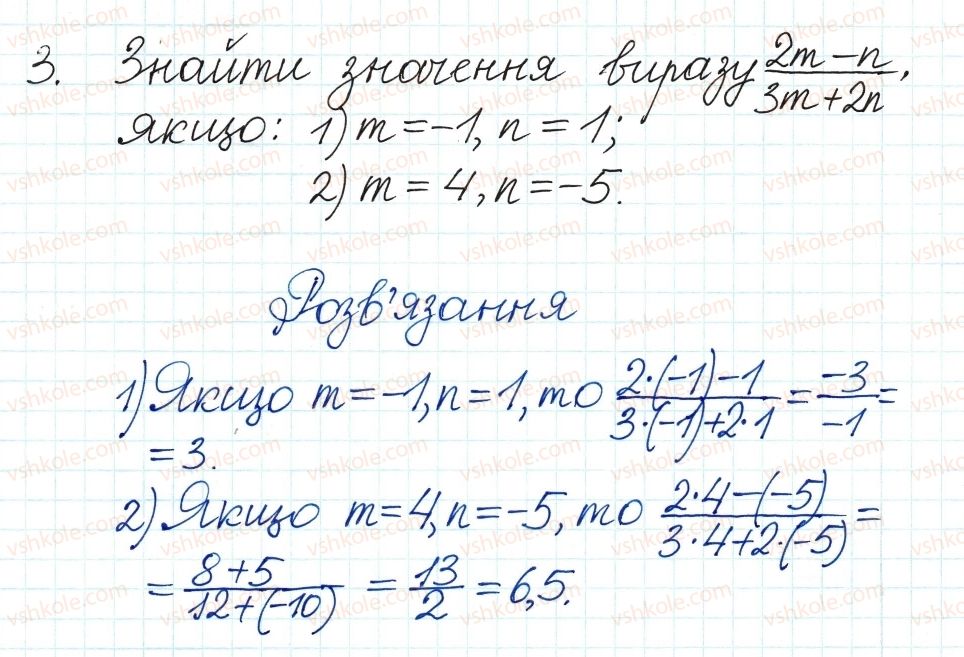 3. Знайти значення виразу (2m − n)/(3m + 2n),
якщо: 1) m = −1, n = 1;
2) m = 4, n = −5.
Розв'язання
1) Якщо m = −1, n = 1, то (2·(−1)−1)/(3·(−1)+2·1) = −3/−1 =
= 3.
2) Якщо m = 4, n = −5, то (2·4−(−5))/(3·4+2·(−5)) =
= (8+5)/(12+(−10)) = 13/2 = 6,5.
vshkole.com